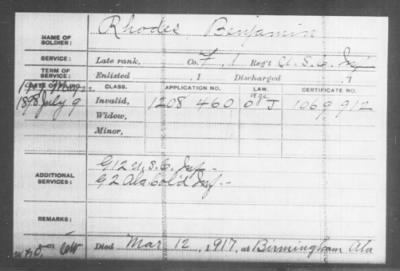 NAME OF SOLDIER: Rhodes Benjamin
SERVICE: Late rank, Co. F, 1 Reg't U.S.C. Inf
TERM OF SERVICE: Enlisted , 1 Discharged , 1
DATE OF FILING. CLASS. APPLICATION NO. LAW. CERTIFICATE NO.
1898 July 9. Invalid, 1208 460 J 1069,912
Widow,
Minor,
ADDITIONAL SERVICES: G 12 U.S.C. Inf.-
G 2 Ala Col'd Inf.-
REMARKS:
Died Mar 12, 1917, at Birmingham Ala